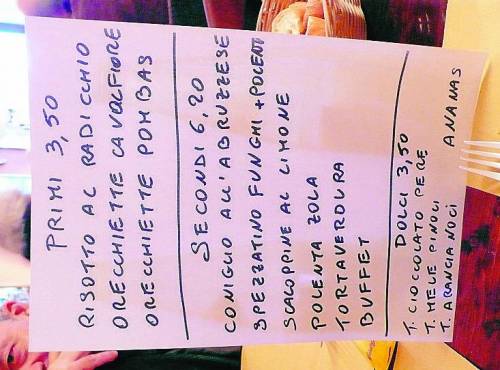 PRIMI 3,50
RISOTTO AL RADICCHIO
ORECCHIETTE CAVOLFIORE
ORECCHIETTE POMBAS
SECONDI 6,20
CONIGLIO ALL'ABRUZZESE
SPEZZATINO FUNGHI + POLENTA
SCALOPPINE AL LIMONE
POLENTA ZOLA
TORTAVERDURA
BUFFET
DOLCI 3,50
T. CIOCCOLATO PERE
T. MELE PINOLI
T. ARANCIA NOCI ANANAS